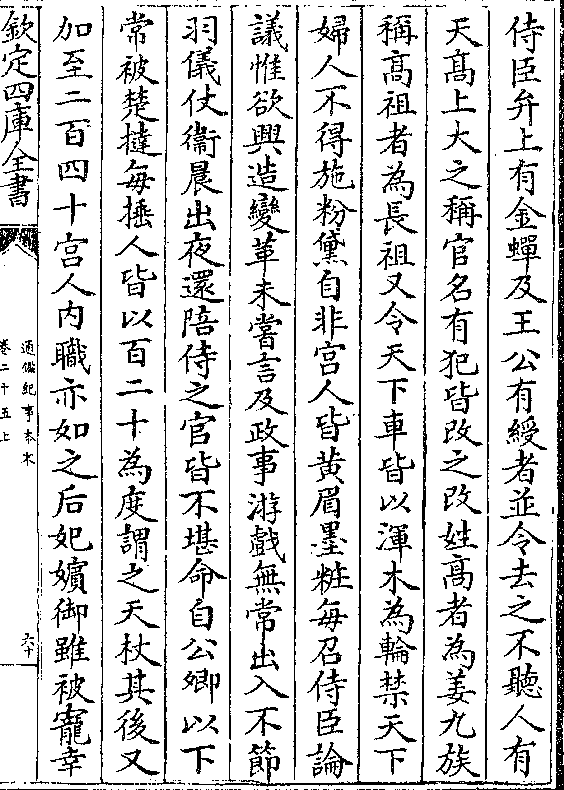 侍臣弁上有金蟬及王公有綬者並令去之不聽人有
天髙上大之稱官名有犯皆改之改姓髙者為姜九族
稱髙祖者為長祖又令天下車皆以渾木為輪禁天下
婦人不得施粉黛自非宫人皆黄眉墨粧毎召侍臣論
議惟欲興造變革未嘗言及政事游戲無常出入不節
羽儀仗衞晨出夜還陪侍之官皆不堪命自公卿以下
常被楚撻毎捶人皆以百二十為度謂之天杖其後又
加至二百四十宫人内職亦如之后妃嬪御雖被寵幸
欽定四庫全書
通鑑紀事本末
卷二十五上
六十